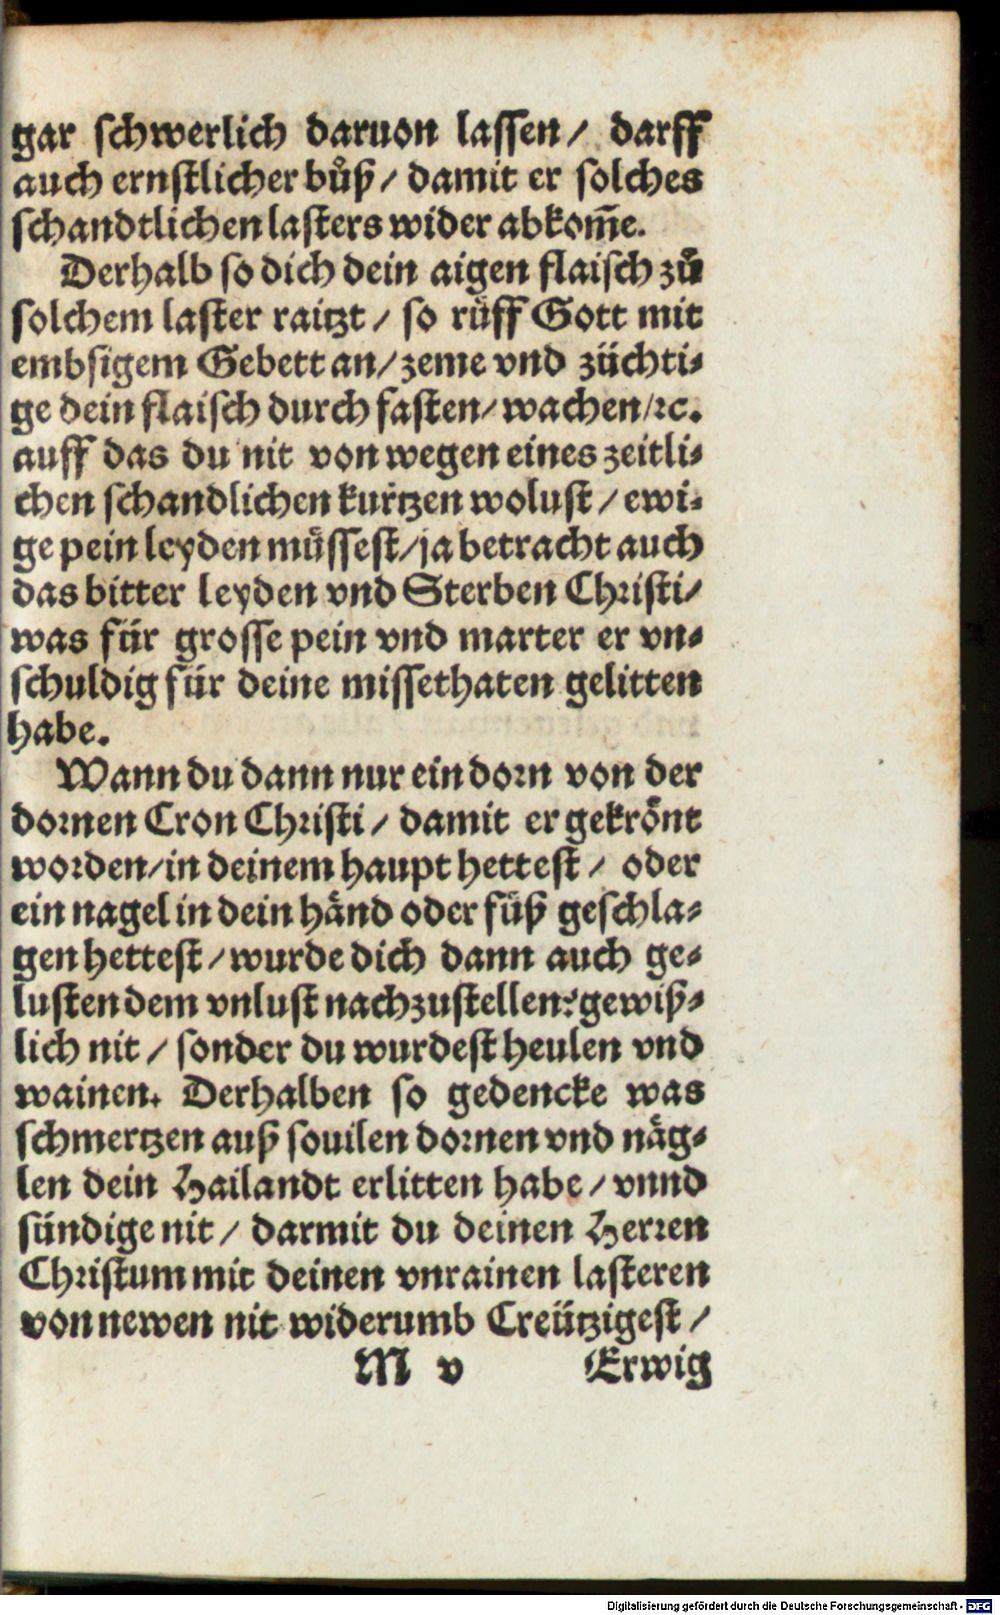 gar schwerlich daruon lassen / darff
auch ernstlicher bůß / damit er solches
schandtlichen lasters wider abkom̃e.
Derhalb so dich dein aigen flaisch zů
solchem laster raitzt / so rüff Gott mit
embsigem Gebett an / zeme vnd züchti-
ge dein flaisch durch fasten / wachen / ꝛc.
auff das du nit von wegen eines zeitli-
chen schandlichen kurtzen wolust / ewi-
ge pein leyden müssest / ja betracht auch
das bitter leyden vnd Sterben Christi /
was für grosse pein vnd marter er vn-
schuldig für deine missethaten gelitten
habe.
Wann du dann nur ein dorn von der
dornen Cron Christi / damit er gekrönt
worden / in deinem haupt hettest / oder
ein nagel in dein händ oder füß geschla-
gen hettest / wurde dich dann auch ge-
lusten dem vnlust nachzustellen? gewiß-
lich nit / sonder du wurdest heulen vnd
wainen. Derhalben so gedencke was
schmertzen auß souilen dornen vnd näg-
len dein Hailandt erlitten habe / vnnd
sündige nit / darmit du deinen Herren
Christum mit deinen vnrainen lasteren
von newen nit widerumb Creützigest /
M v Erwig
Digitalisierung gefördert durch die Deutsche Forschungsgemeinschaft - DFG